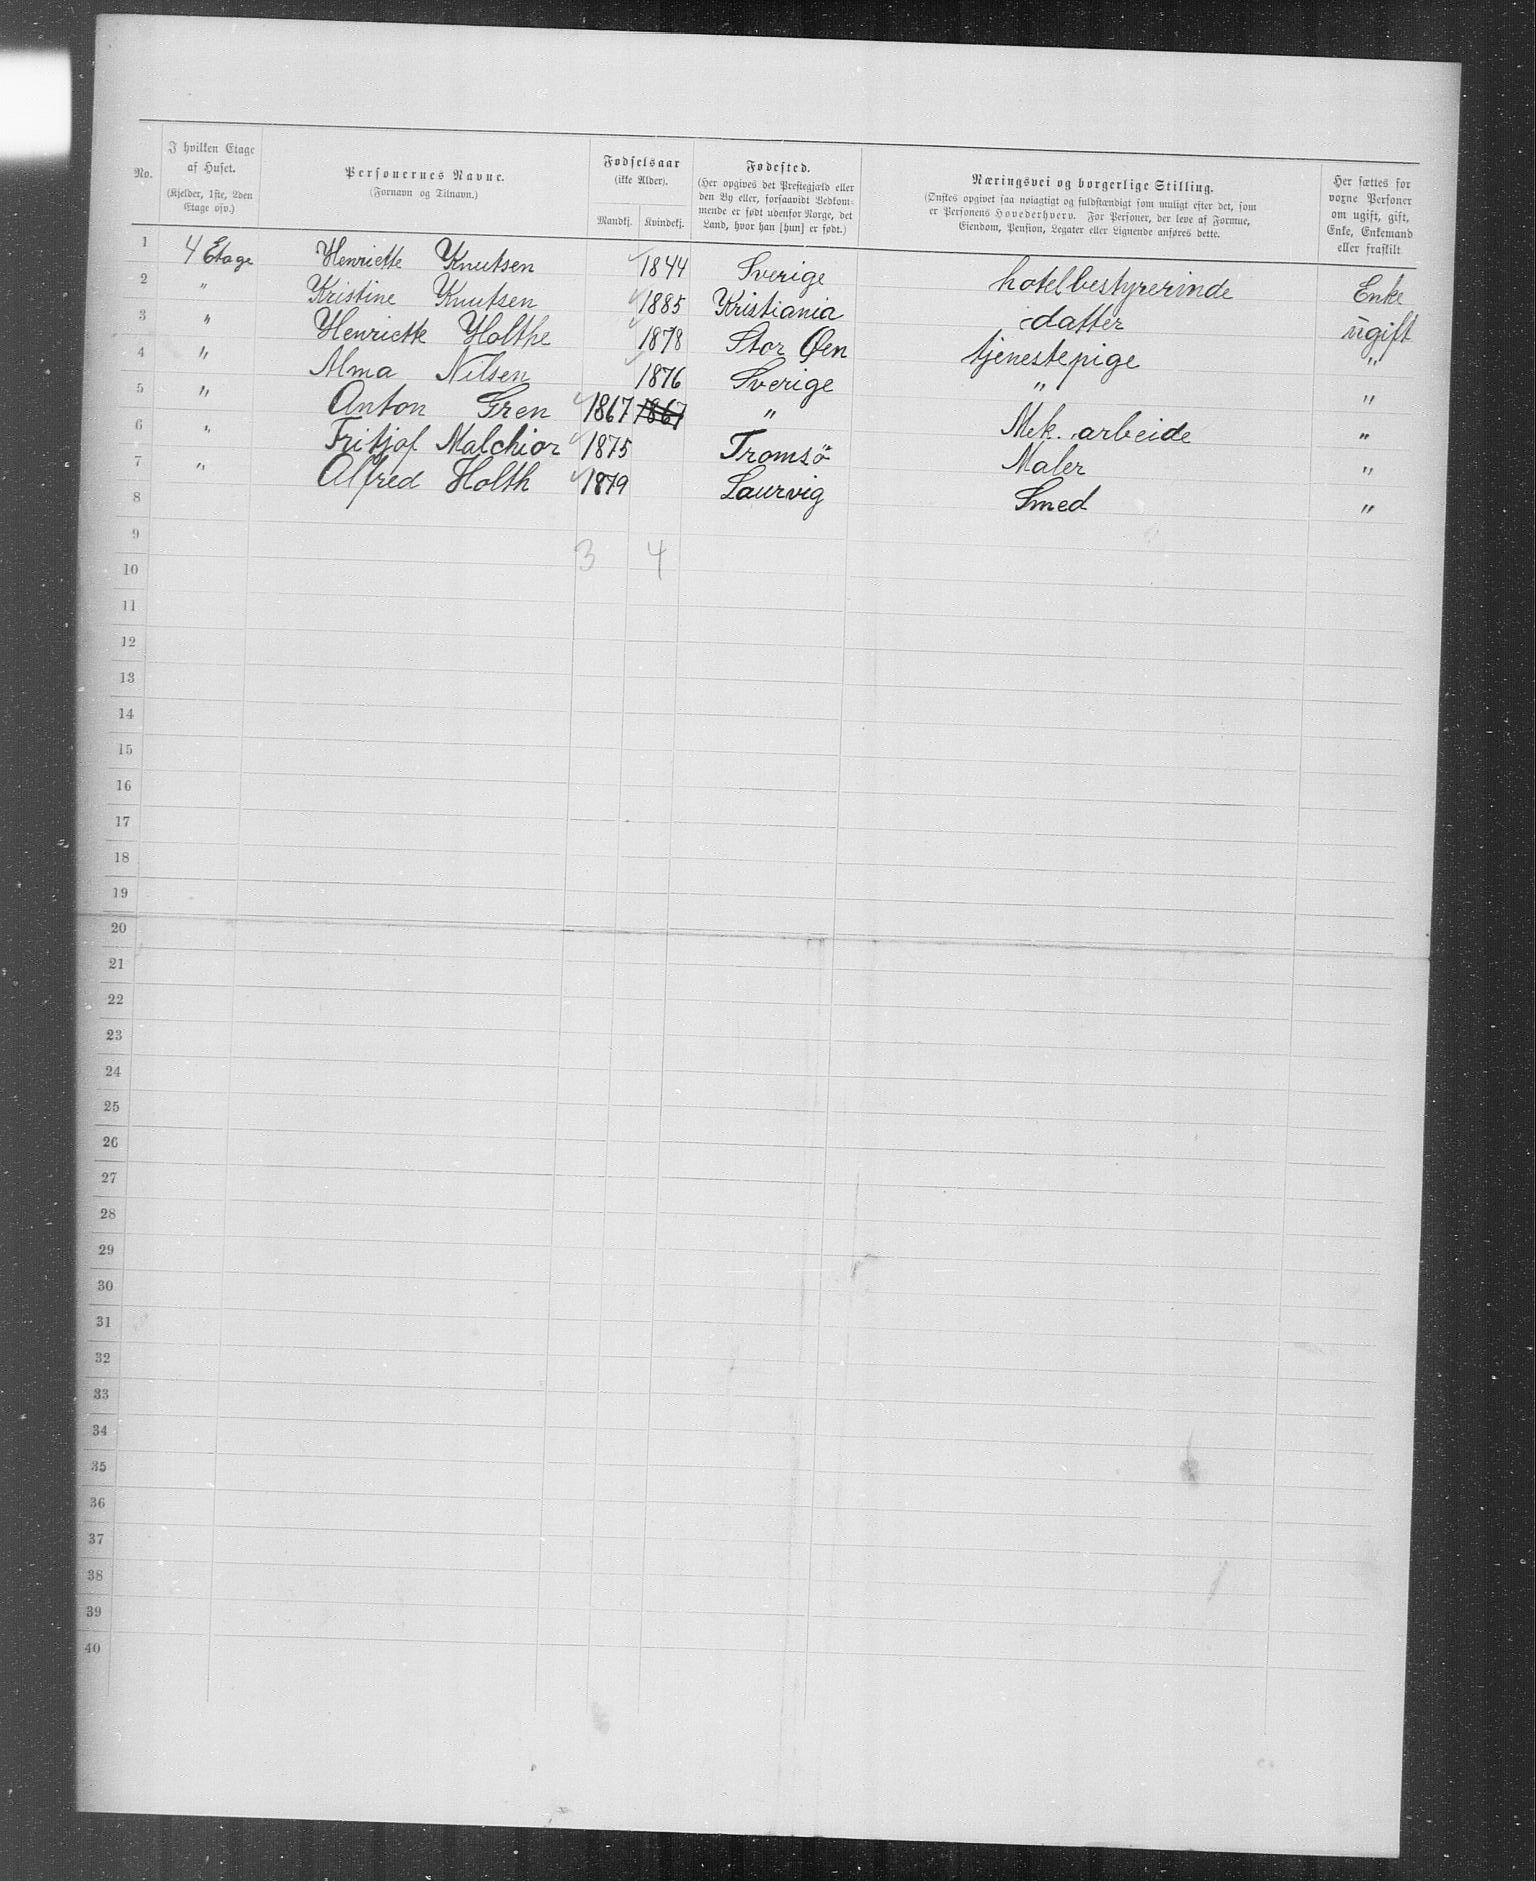 No. | I hvilken Etage af Huset. (Kjelder, 1ste, 2den Etage osv.) | Personernes Navne. (Fornavn og Tilnavn.) | Fødselsaar (ikke Alder). Mandkj. Kvindekj. | Fødested. (Her opgives det Prestegjæld eller den By eller, forsaavidt Vedkommende er født udenfor Norge, det Land, hvor han [hun] er født.) | Næringsvei og borgerlige Stilling. (Ønskes opgivet saa nøiagtigt og fuldstændigt som muligt efter det, som er Personens Hovederhverv. For Personer, der leve af Formue, Eiendom, Pension, Legater eller Lignende anføres dette. | Her sættes for voxne Personer om ugift, gift, Enke, Enkemand eller fraskilt
1 4 Etage Henriette Knutsen 1844 Sverige hotelbestyrerinde Enke
2 " Kristine Knutsen 1885 Kristiania datter ugift
3 " Henriette Holthe 1878 Stor Øen tjenestepige "
4 " Alma Nilsen 1876 Sverige " "
5 " Anton Gren 1867 1867 " Mek. arbeide "
6 " Fritjof Malchior 1875 Tromsö Maler "
7 " Alfred Holth 1879 Laurvig Smed "
8
9
10 3 4
11
12
13
14
15
16
17
18
19
20
21
22
23
24
25
26
27
28
29
30
31
32
33
34
35
36
37
38
39
40